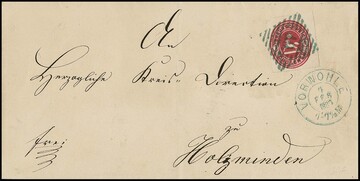 An
Herzogliche Kreis-Direction
zu
frei
Holzminden
VORWOHLE
7
FEB